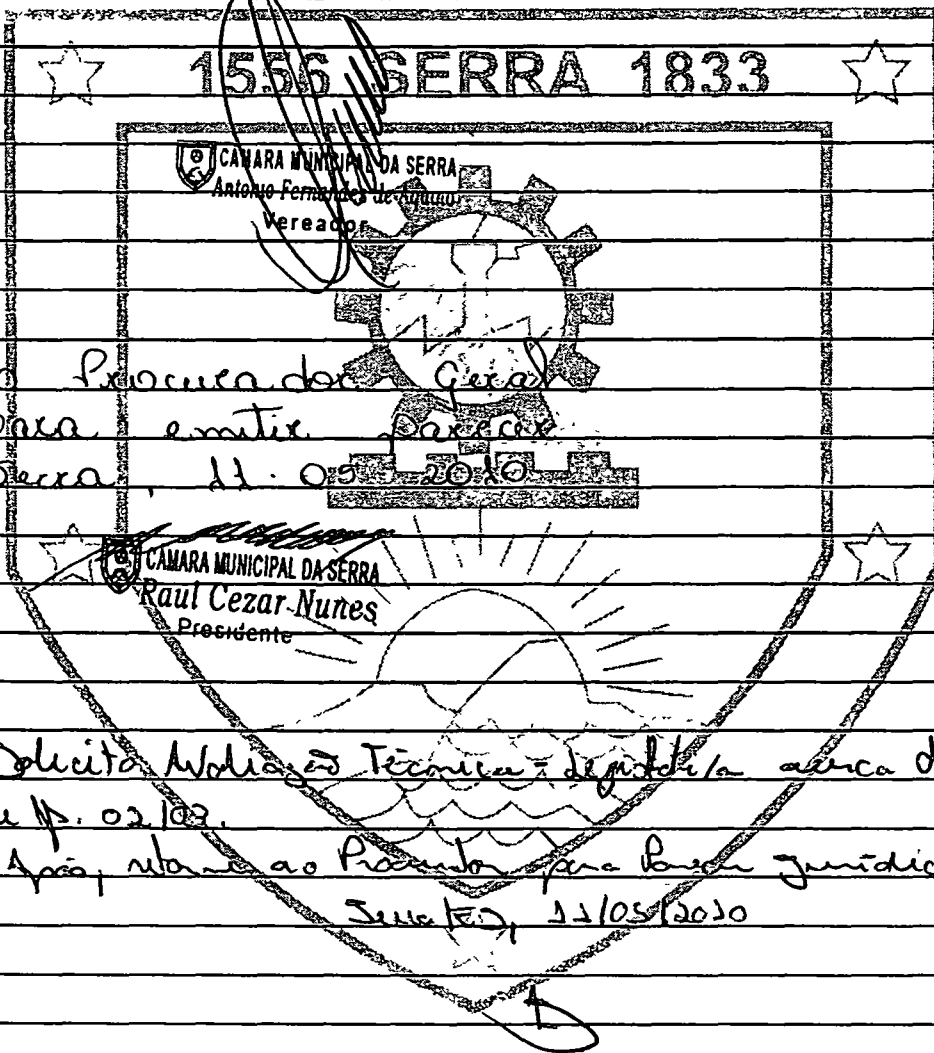 1556 SERRA 1833
CAMARA MUNICIPAL DA SERRA
Antonio Fernandes de Aquino
Vereador
Procurador Geral
para emitir parecer
Serra, 11.05 2010
CAMARA MUNICIPAL DA SERRA
Raul Cezar Nunes
Presidente
Solicito Avaliação Técnica-Legislativa acerca d
02/03.
Após, retorne ao Procurador para Parecer Jurídic
Serra/ES, 11/05/2010